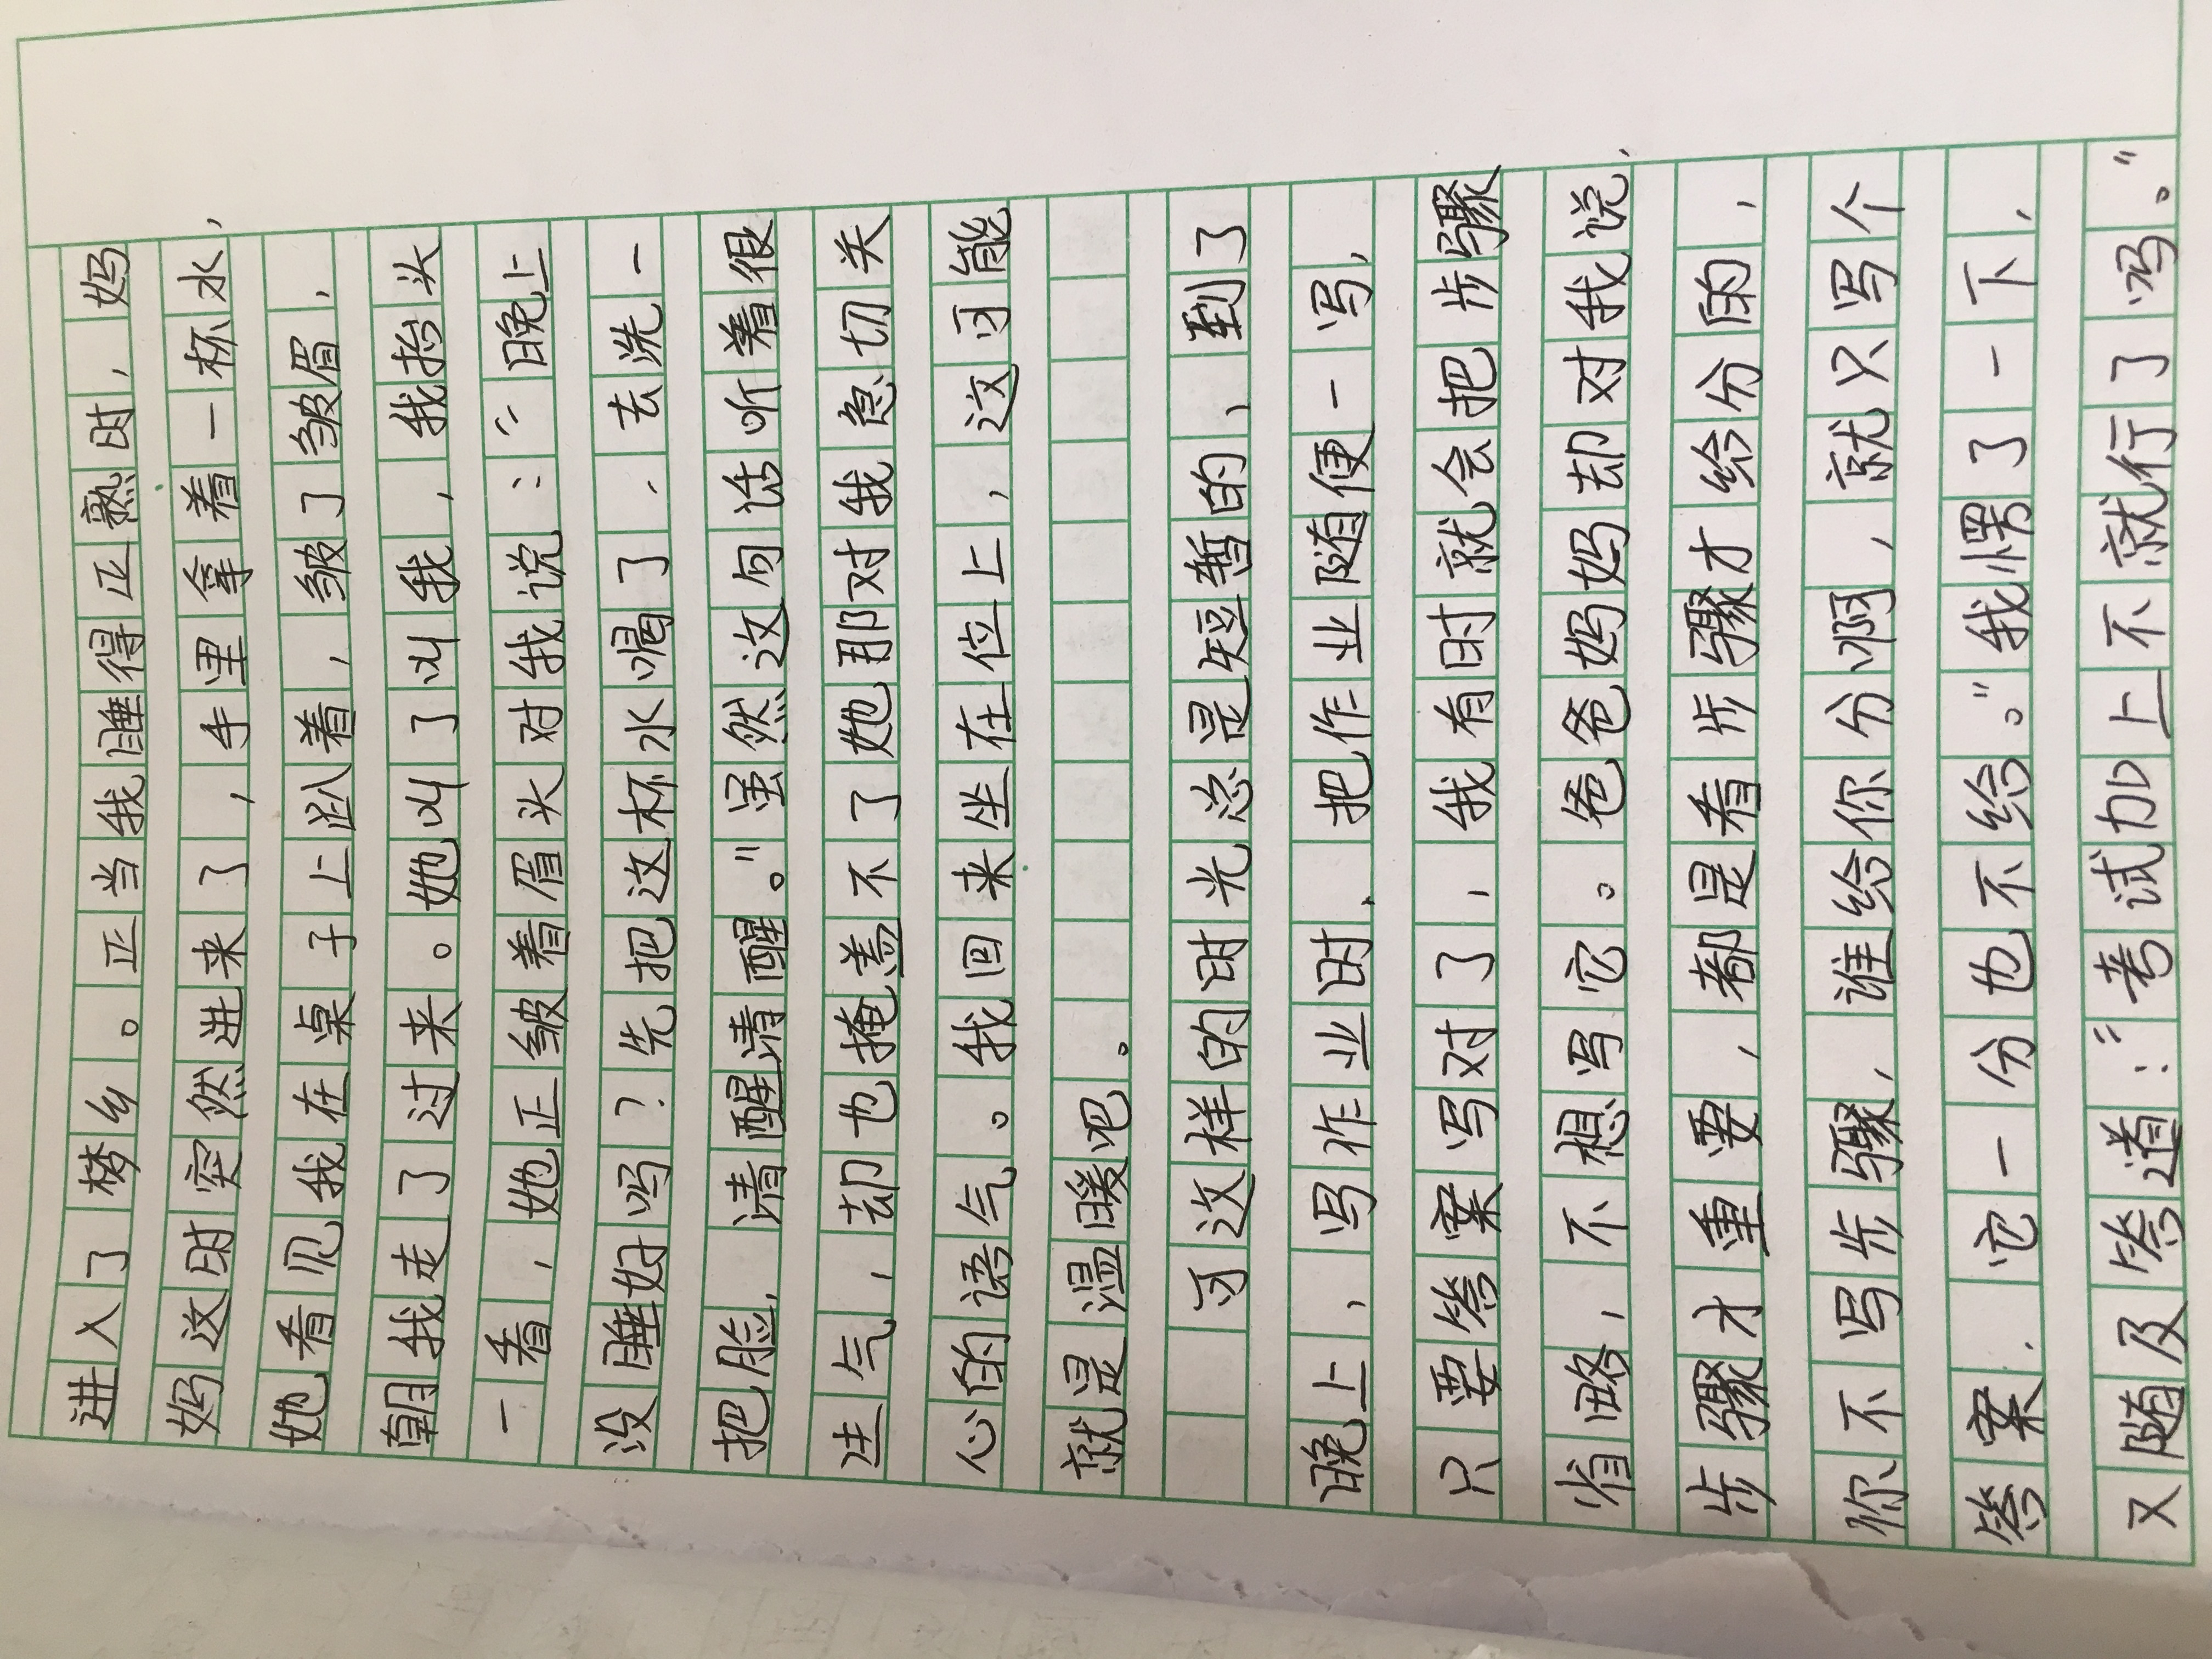 进入了梦乡。正当我睡得正熟时，妈
妈这时突然进来了，手里拿着一杯水，
她看见我在桌子上趴着，皱了皱眉，
朝我走了过来。她叫了叫我，我抬头
一看，她正皱着眉头对我说：“晚上
没睡好吗？先把这杯水喝了，去洗一
把脸，清醒清醒。”虽然这句话听着很
生气，却也掩盖不了她那对我急切关
心的语气。我回来坐在位上，这可能
就是温暖吧。
可这样的时光总是短暂的，到了
晚上，写作业时，把作业随便一写，
只要答案写对了，我有时就会把步骤
省略，不想写它。爸爸妈妈却对我说，
步骤才重要，都是看步骤才给分的，
你不写步骤，谁给你分啊，就只写个
答案，它一分也不给。”我愣了一下，
又随及答道：“考试加上不就行了吗。”